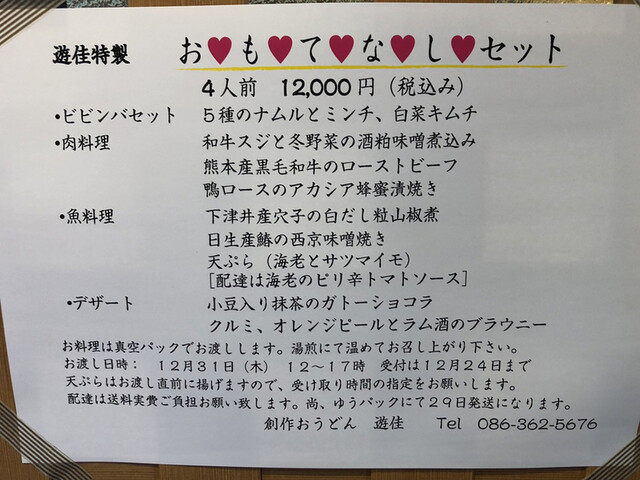 遊佳特製 お♥も♥て♥な♥し♥セット
4人前 12,000円（税込み）
•ビビンバセット 5種のナムルとミンチ、白菜キムチ
•肉料理 和牛スジと冬野菜の酒粕味噌煮込み
熊本産黒毛和牛のローストビーフ
鴨ロースのアカシア蜂蜜漬焼き
•魚料理 下津井産穴子の白だし粒山椒煮
日生産鰆の西京味噌焼き
天ぷら（海老とサツマイモ）
[配達は海老のピリ辛トマトソース]
•デザート 小豆入り抹茶のガトーショコラ
クルミ、オレンジピールとラム酒のブラウニー
お料理は真空パックでお渡しします。湯煎にて温めてお召し上がり下さい。
お渡し日時： 12月31日（木） 12～17時 受付は12月24日まで
天ぷらはお渡し直前に揚げますので、受け取り時間の指定をお願いします。
配達は送料実費ご負担お願い致します。尚、ゆうパックにて29日発送になります。
創作おうどん 遊佳 Tel 086-362-5676